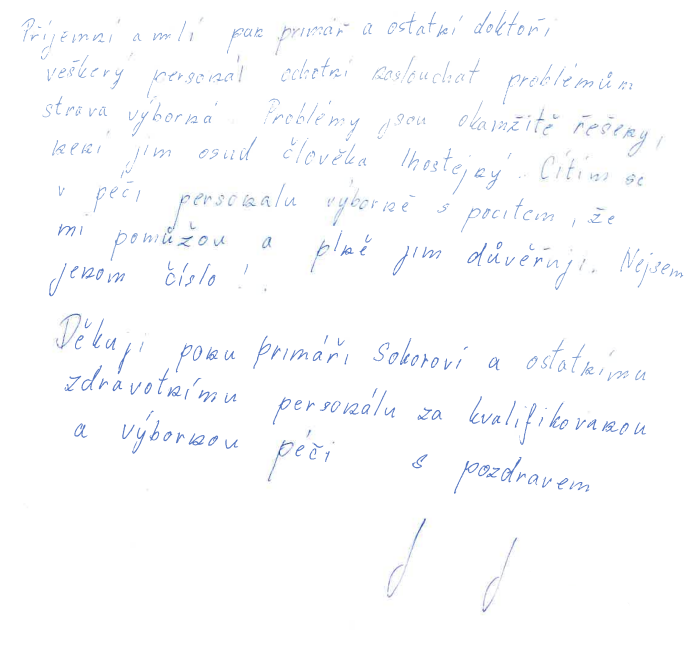 Příjemní a milí pan primář a ostatní doktoři
veškerý personál ochotní naslouchat problémům
strava výborná. Problémy jsou okamžitě řešeny,
není jim osud člověka lhostejný. Cítím se
v péči personalu výborně s pocitem, že
mi pomůžou a plně jim důvěřuji. Nejsem
jenom číslo!.
Děkuji panu primáři Sokorovi a ostatnímu
zdravotnímu personálu za kvalifikovanou
a výbornou péči s pozdravem